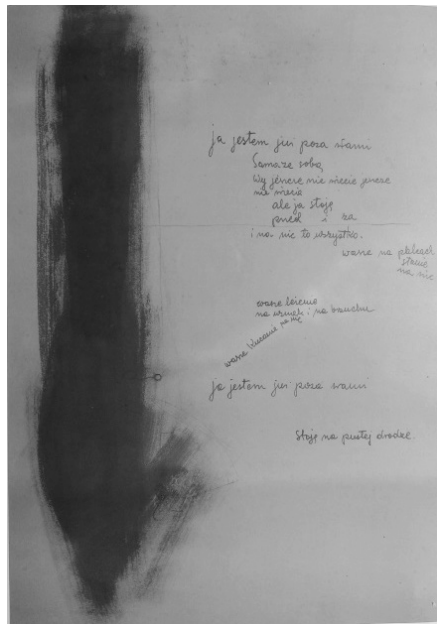 ja jestem już poza wami
Sama ze sobą
Wy jeszcze nie wiecie jeszcze
nie wiecie
ale ja stoję
przed i za
i na nic to wszystko.
wasze na plecach
stanie
na nic
wasze leżenie
na wznak i na brzuchu
wasze
ja jestem już poza wami
Stoję na pustej drodze.